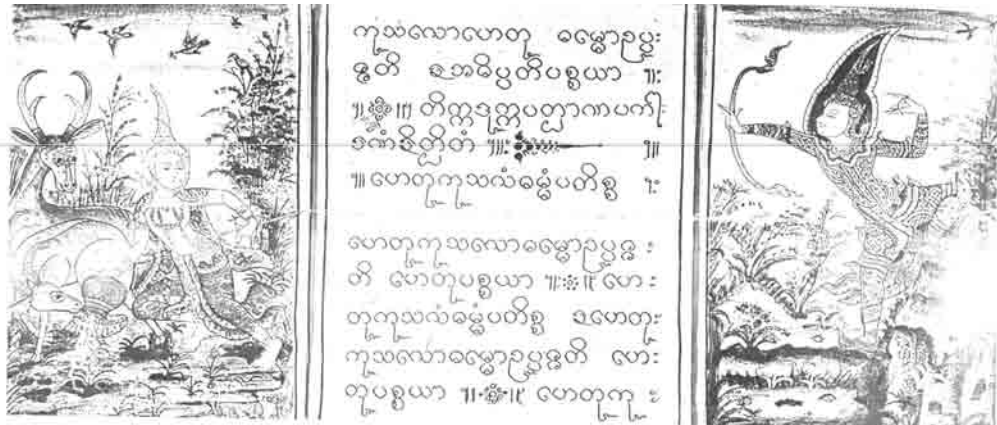 ကုသလောဟေတု ဓမ္မောဥပ္ပး
ဇ္ဇတိ နအဓိပ္ပတိပစ္စယာ ။း
။ ။ တိက္ကဒုက္ကပတ္ဌာန
နိဋ္ဌိတံ ။ ။
။ ဟေတုကုသလံဓမ္မံပတိစ္စ း
ဟေတုကုသလောဓမ္မောဥပ္ပဇ္ဇ း
တိ ဟေတုပစ္စယာ ။ ။ ဟေ း
တုကုသလံဓမ္မံပတိစ္စ နဟေတုး
ကုသလောဓမ္မောဥပ္ပဇ္ဇတိ ဟေး
တုပစ္စယာ ။ ။ ဟေတုကု း